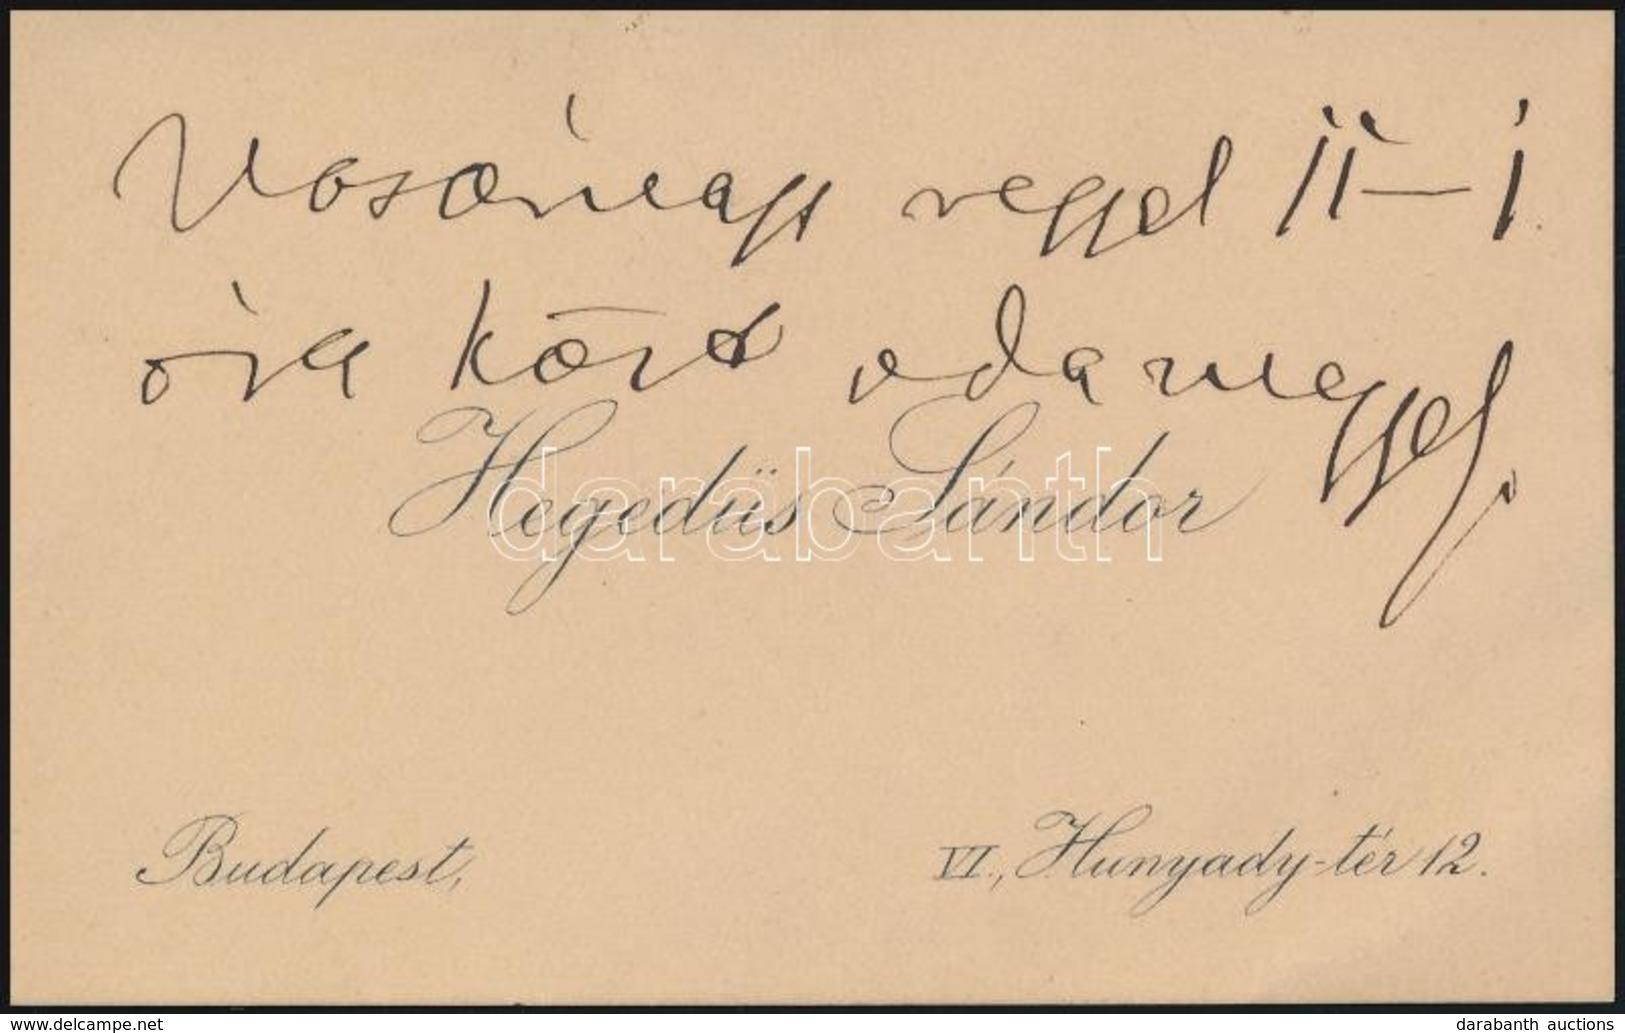 Vasárnap reggel 11–1
óra közt odamegyek.
Hegedüs Sándor
darabanth
Budapest,
VI., Hunyady-tér 12.
www.delcampe.net
darabanth auctions